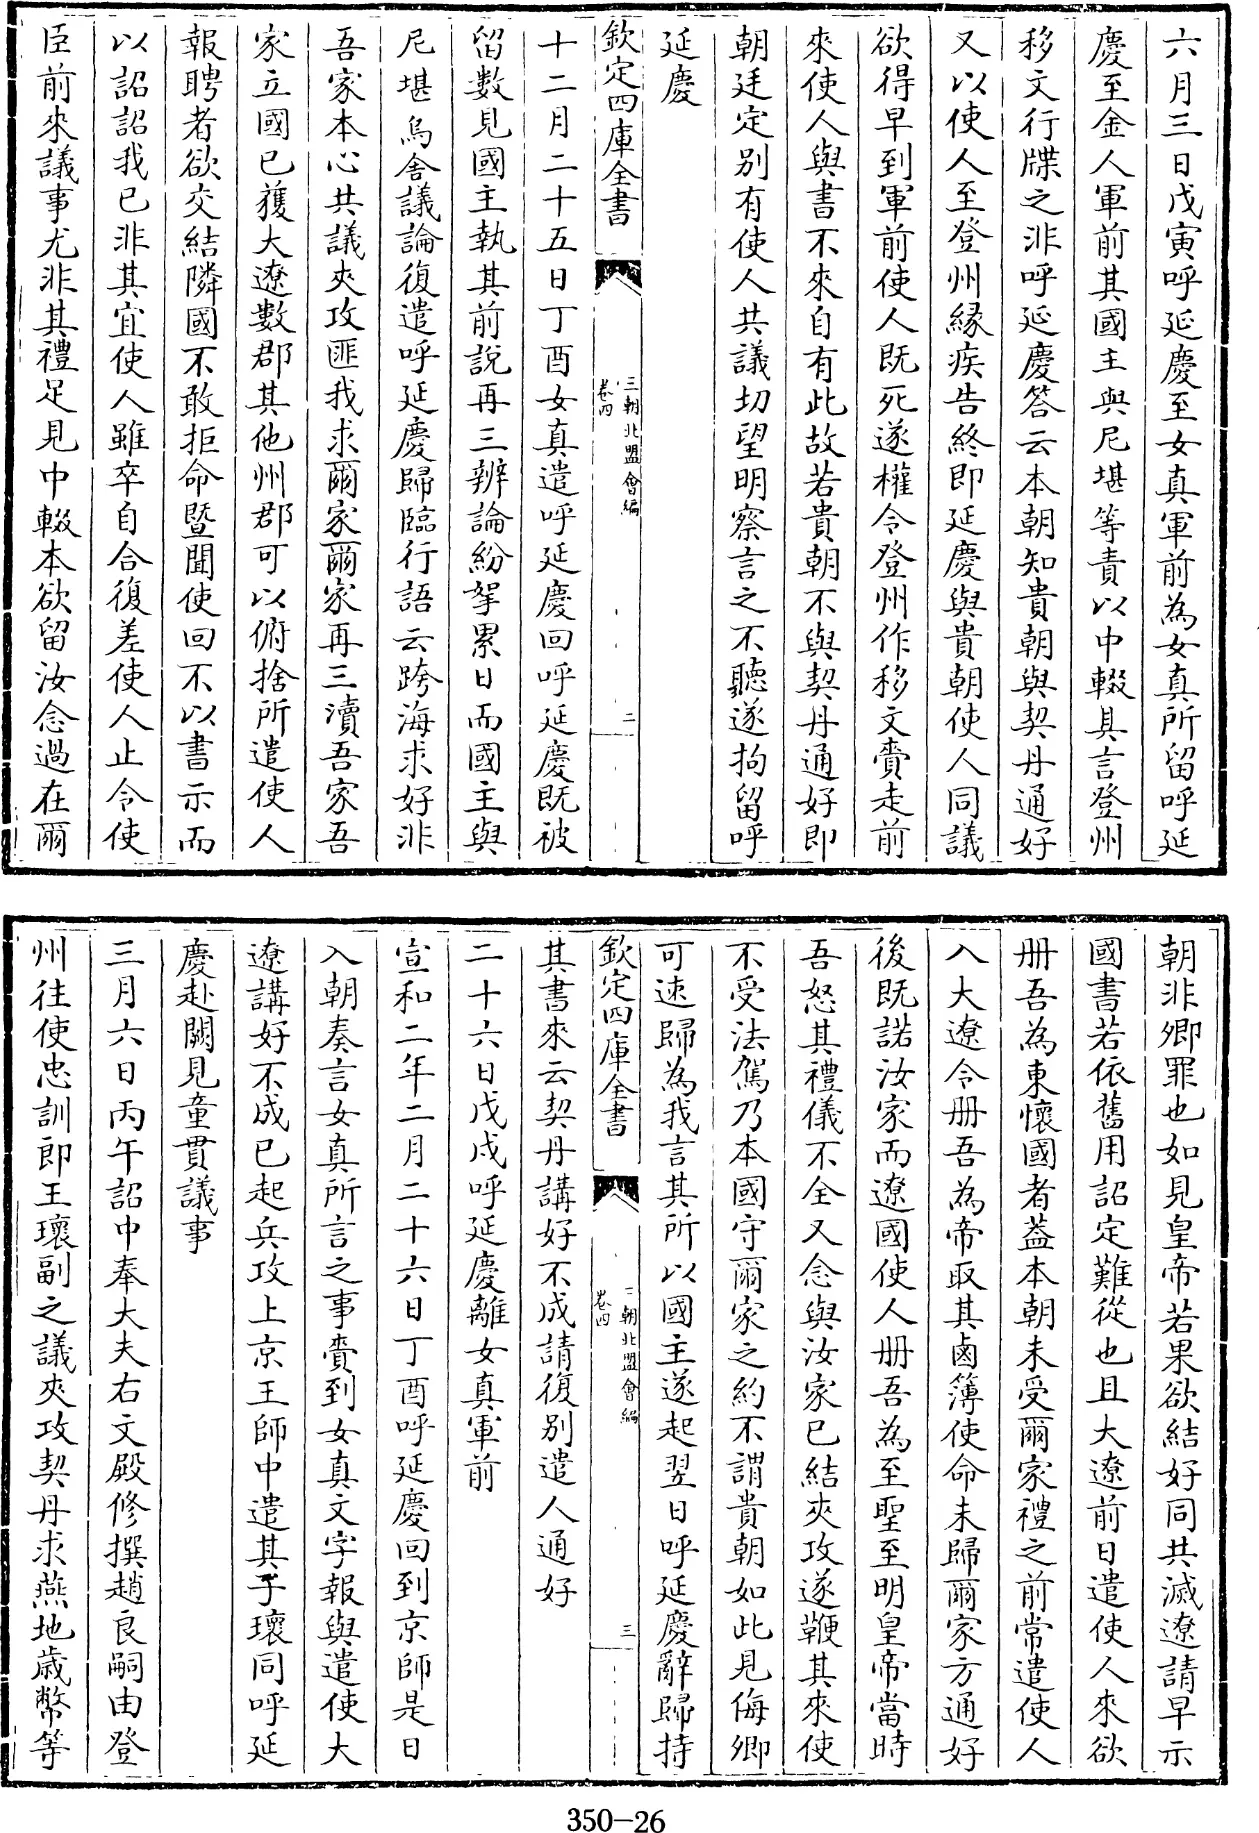 六月三日戊寅呼延慶至女真軍前為女真所留呼延
慶至金人軍前其國主與尼堪等責以中輟具言登州
移文行牒之非呼延慶答云本朝知貴朝與契丹通好
又以使人至登州緣疾告終即延慶與貴朝使人同議
欲得早到軍前使人既死遂權令登州作移文賫走前
來使人與書不來自有此故若貴朝不與契丹通好即
朝廷定別有使人共議切望明察言之不聽遂拘留呼
延慶
欽定四庫全書
三朝北盟會編
卷四
二
十二月二十五日丁酉女真遣呼延慶回呼延慶既被
留數見國主執其前說再三辨論紛拏累日而國主與
尼堪烏舍議論復遣呼延慶歸臨行語云跨海求好非
吾家本心共議夾攻匪我求爾家爾家再三瀆吾家吾
家立國已獲大遼數郡其他州郡可以俯捨所遣使人
報聘者欲交結隣國不敢拒命暨聞使回不以書示而
以詔詔我已非其宜使人雖卒自合復差使人止令使
臣前來議事尤非其禮足見中輟本欲留汝念過在爾
朝非卿罪也如見皇帝若果欲結好同共滅遼請早示
國書若依舊用詔定難從也且大遼前日遣使人來欲
冊吾為東懷國者蓋本朝未受爾家禮之前常遣使人
入大遼令冊吾為帝取其鹵簿使命未歸爾家方通好
後既諾汝家而遼國使人冊吾為至聖至明皇帝當時
吾怒其禮儀不全又念與汝家已結夾攻遂鞭其來使
不受法駕乃本國守爾家之約不謂貴朝如此見侮卿
可速歸為我言其所以國主遂起翌日呼延慶辭歸持
欽定四庫全書
三朝北盟會編
卷四
三
其書來云契丹講好不成請復別遣人通好
二十六日戊戌呼延慶離女真軍前
宣和二年二月二十六日丁酉呼延慶回到京師是日
入朝奏言女真所言之事賫到女真文字報與遣使大
遼講好不成已起兵攻上京王師中遣其子瓌同呼延
慶赴闕見童貫議事
三月六日丙午詔中奉大夫右文殿修撰趙良嗣由登
州往使忠訓郎王瓌副之議夾攻契丹求燕地歲幣等
350-26